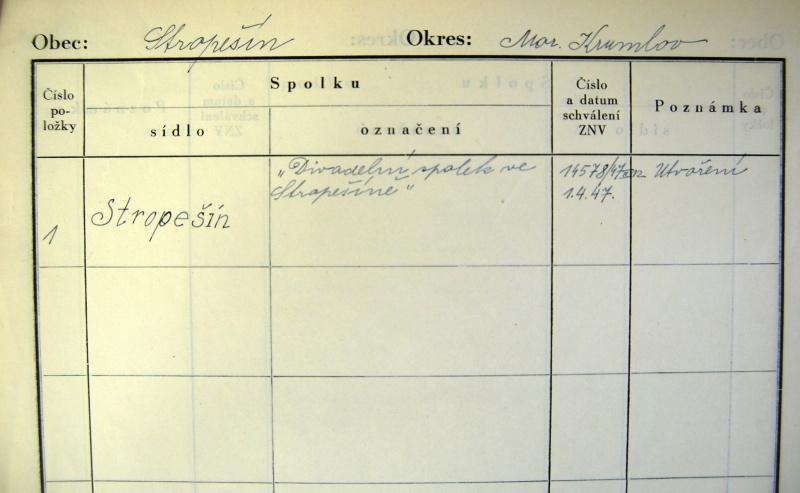 Obec: Stropešín Okres: Mor. Krumlov
Číslo
po-
ložky
Spolku
sídlo
označení
Číslo
a datum
schválení
ZNV
Poznámka
1
Stropešín
„Divadelní spolek ve
Stropešíně"
14578/47
1.4.47.
Utvoření